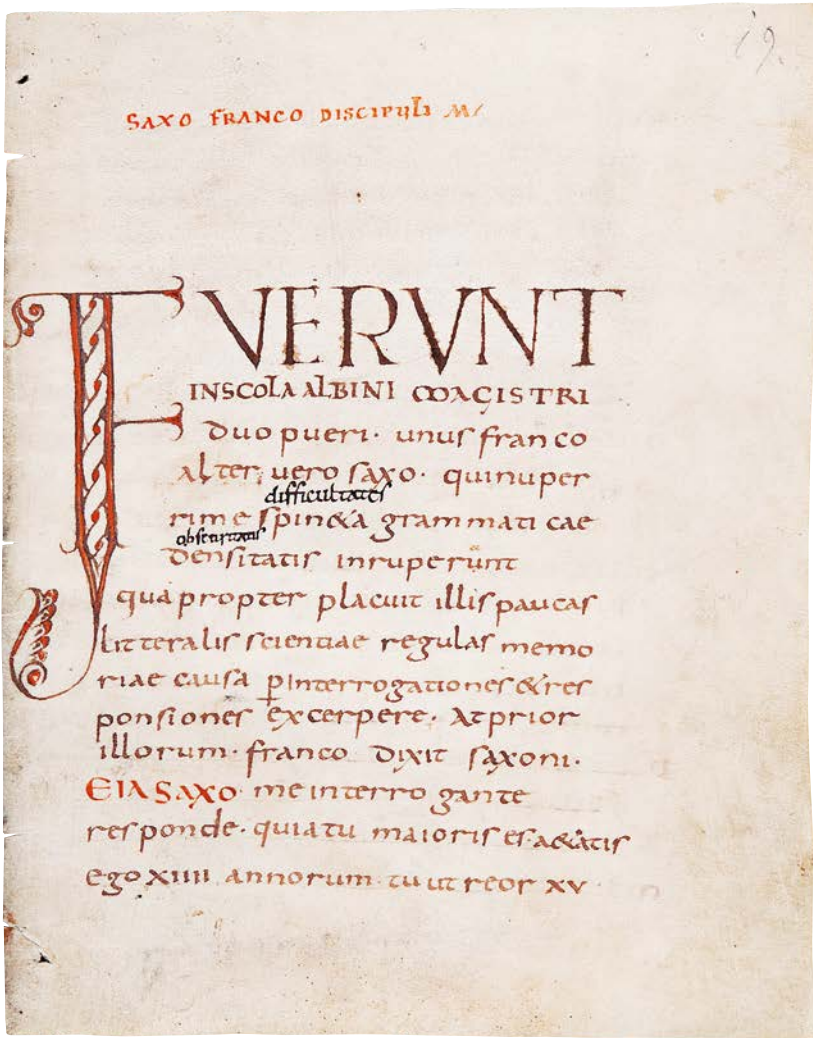 19.
SAXO FRANCO DISCIPULI M/
FUERUNT
IN SCOLA ALBINI MAGISTRI
duo pueri · unus franco
alter, uero saxo · qui nuper
difficultates
rime spin&a grammaticae
obscuritatis
densitatis inruperunt
quapropter placuit illis paucas
litteralis scientiae regulas memo
riae causa ꝑ interrogationes & res
ponsiones excerpere · At prior
illorum · franco dixit saxoni ·
EIA SAXO · me interrogante
responde · quia tu maioris es a&atis
ego XIIII annorum · tu ut reor XV ·